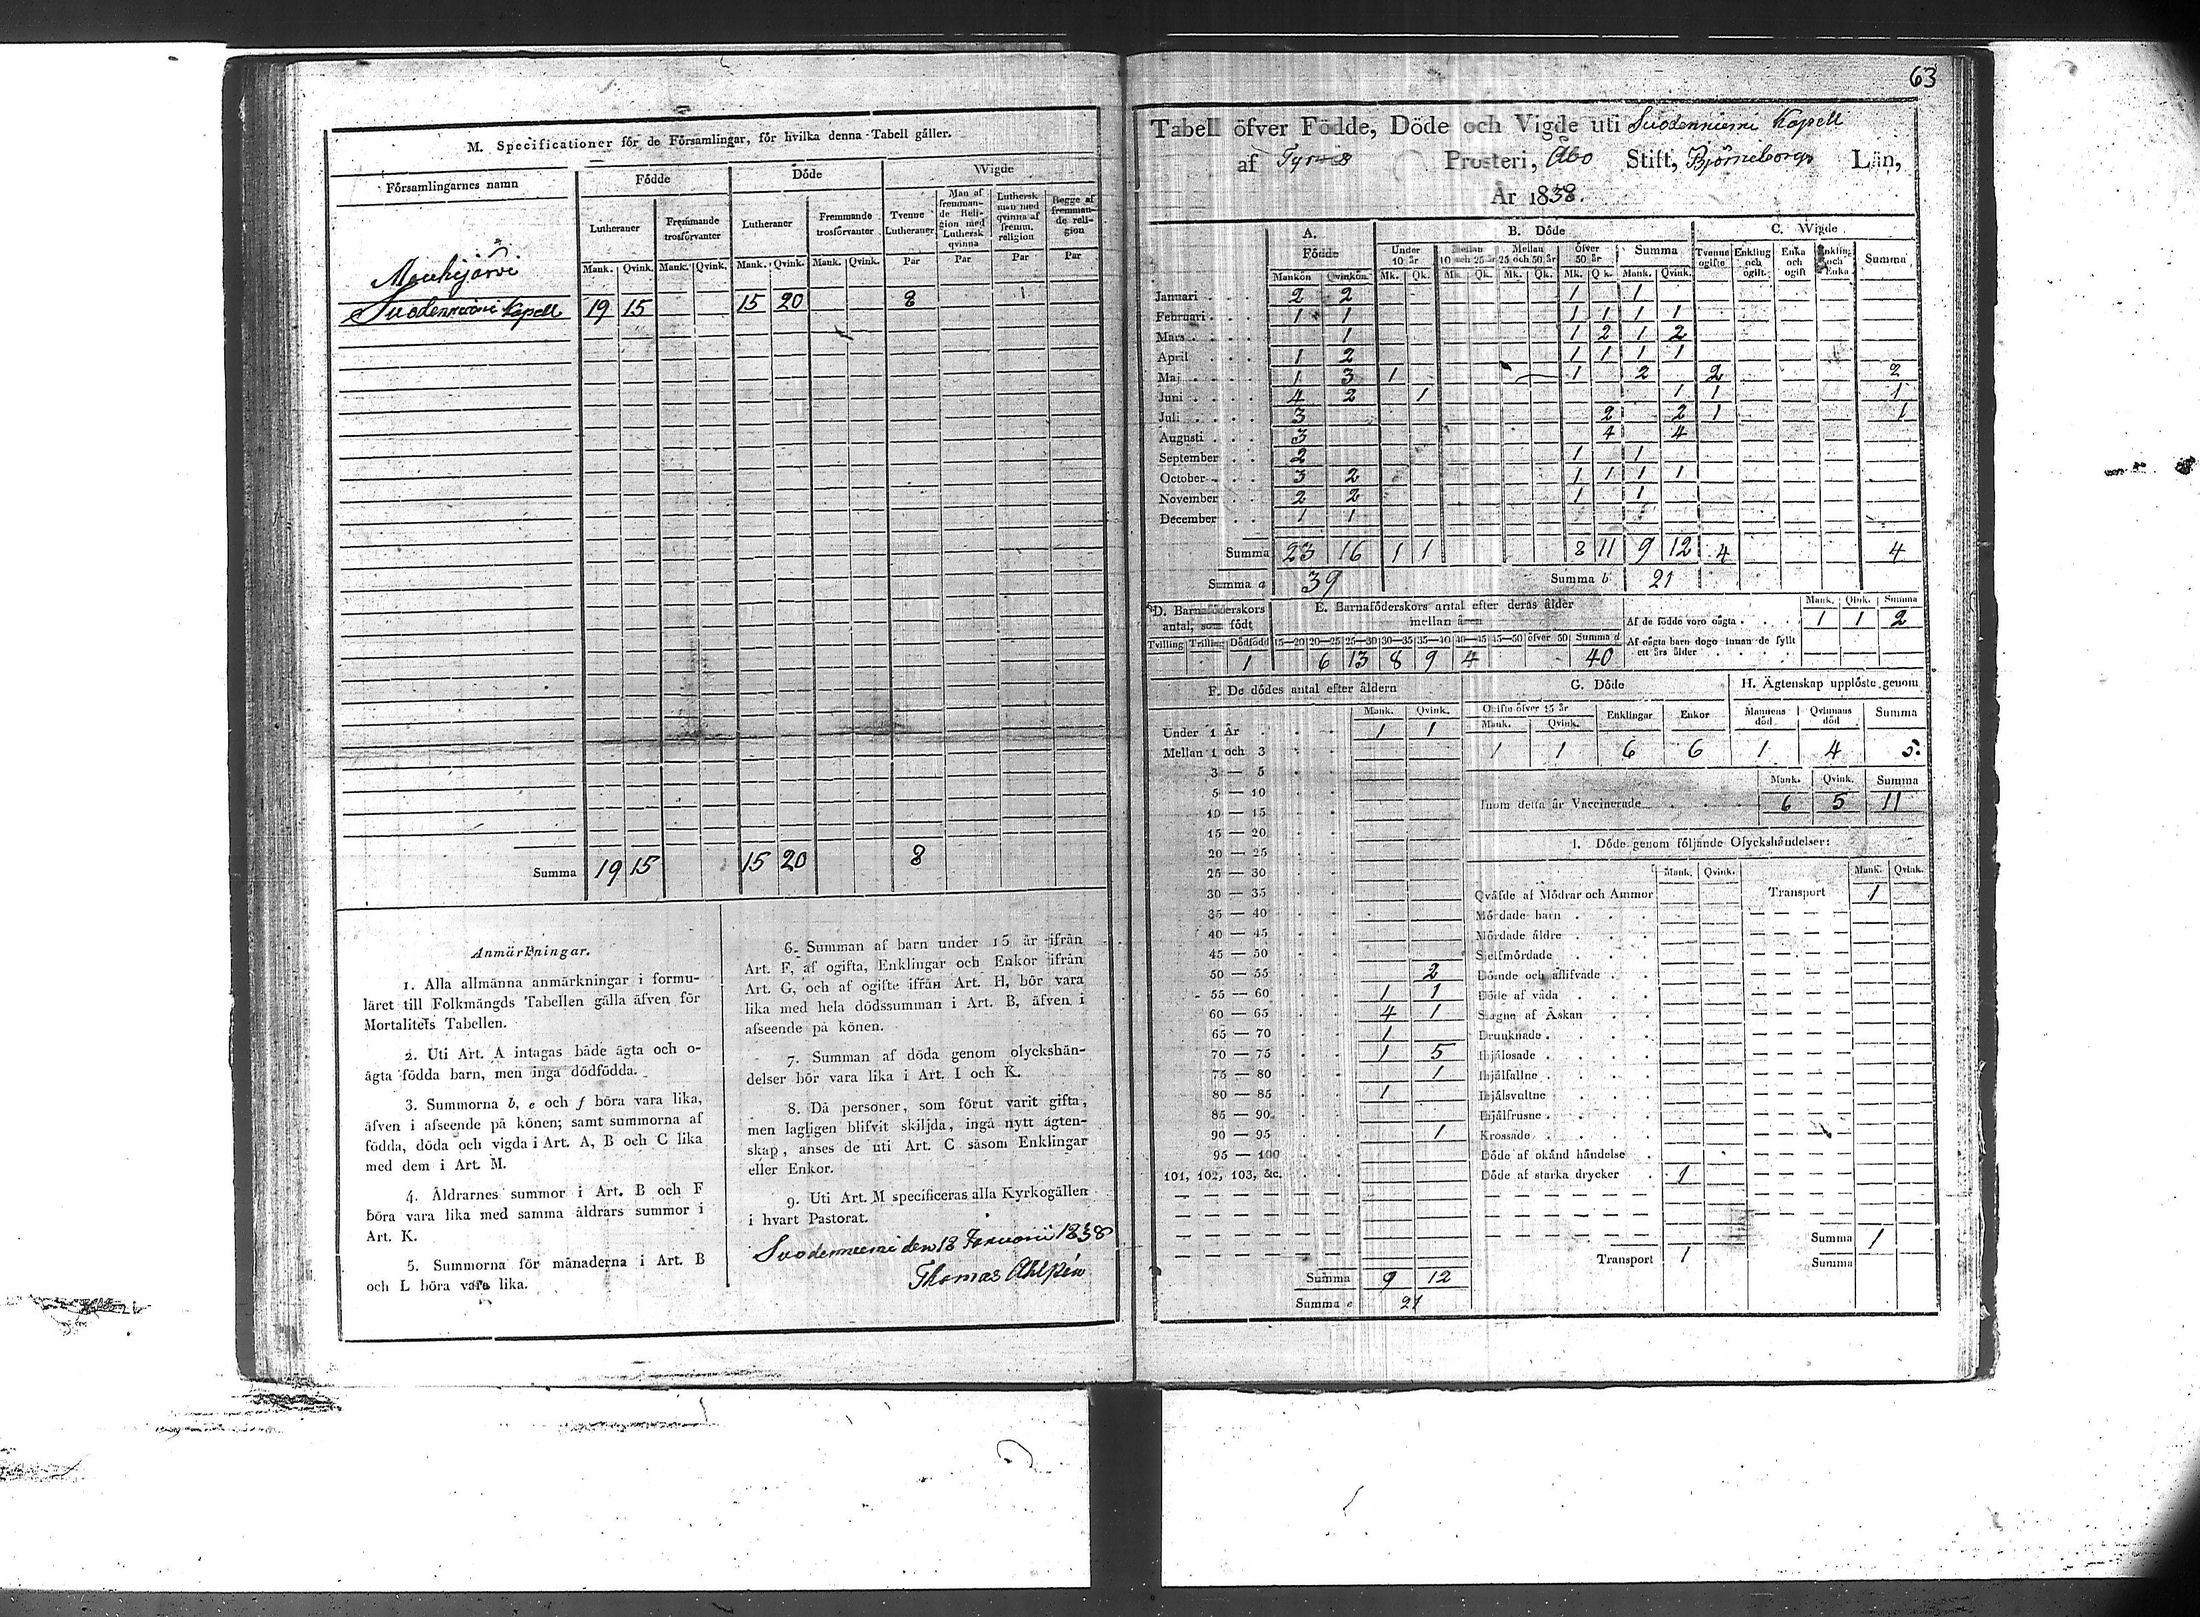 M. Specificationer för de Församlingar, för hvilka denna Tabell gäller.
Församlingarnes namn
Födde Döde Wigde
Lutheraner Fremmande trosförvanter Lutheraner Fremmande trosförvanter Tvenne Lutheraner Man af fremmande Religion med Luthersk qvinna Luthersk man med qvinna af fremm. religion Begge af fremmande religion
Mank. Qvink. Mank. Qvink. Mank. Qvink. Mank. Qvink. Par Par Par Par
Mouhijärvi
Suodenniemi Kapell 19 15 15 20 8
Summa 19 15 15 20 8
Anmärkningar.
1. Alla allmänna anmärkningar i formu-
läret till Folkmängds Tabellen gälla äfven för
Mortalitets Tabellen.
2. Uti Art. A intagas både ägta och o-
ägta födda barn, men inga dödfödda.
3. Summorna b, e och f böra vara lika,
äfven i afseende på könen; samt summorna af
födda, döda och vigda i Art. A, B och C lika
med dem i Art. M.
4. Åldrarnes summor i Art. B och F
böra vara lika med samma åldrars summor i
Art. K.
5. Summorna för månaderna i Art. B
och L böra vara lika.
6. Summan af barn under 15 år ifrån
Art. F, af ogifta, Enklingar och Enkor ifrån
Art. G, och af ogifte ifrån Art. H, bör vara
lika med hela dödssumman i Art. B, äfven i
afseende på könen.
7. Summan af döda genom olyckshän-
delser bör vara lika i Art. I och K.
8. Då personer, som förut varit gifta,
men lagligen blifvit skiljda, ingå nytt ägten-
skap, anses de uti Art. C såsom Enklingar
eller Enkor.
9. Uti Art. M specificeras alla Kyrkogällen
i hvart Pastorat.
Suodenniemi den 18 Januarii 1838
Thomas Ahlpén
63
Tabell öfver Födde, Döde och Vigde uti Suodenniemi Kapell
af Tyrvis Prosteri, Åbo Stift, Björneborgs Län,
År 1838.
A. Födde B. Döde C. Wigde
Under 10 år Mellan 10 och 25 år Mellan 25 och 50 år Öfver 50 år Summa Tvenne ogifte Enkling och ogift Enka och ogift Enkling och Enka Summa
Mankön Qvinkön Mk. Qk. Mk. Qk. Mk. Qk. Mk. Qk. Mank. Qvink.
Januari 2 2 1 1
Februari 1 1 1 1 1 1
Mars 1 1 2 1 2
April 1 2 1 1 1 1
Maj 1 3 1 1 2 2 2
Juni 4 2 1 1 1 1
Juli 3 2 2 1 1
Augusti 3 4 4
September 2 1 1
October 3 2 1 1 1 1
November 2 2 1 1
December 1 1
Summa 23 16 1 1 8 11 9 12 4 4
Summa a 39 Summa b 21
D. Barnaföderskors antal, som födt
Tvilling Trilling Dödfödd
1
E. Barnaföderskors antal efter deras ålder
mellan åren
15—20 20—25 25—30 30—35 35—40 40—45 45—50 öfver 50 Summa d
6 13 8 9 4 40
Mank. Qvink. Summa
Af de födde voro oägta 1 1 2
Af oägta barn dogo innan de fyllt
ett års ålder
F. De dödes antal efter åldern
Mank. Qvink.
Under 1 År 1 1
Mellan 1 och 3
3 — 5
5 — 10
10 — 15
15 — 20
20 — 25
25 — 30
30 — 35
35 — 40
40 — 45
45 — 50
50 — 55 2
55 — 60 1 1
60 — 65 4 1
65 — 70 1
70 — 75 1 5
75 — 80 1
80 — 85 1
85 — 90
90 — 95 1
95 — 100
101, 102, 103, &c.
Summa 9 12
Summa e 21
G. Döde
Ogifte öfver 15 år Enklingar Enkor
Mank. Qvink.
1 1 6 6
H. Ägtenskap upplöste genom
Mannens död Qvinnans död Summa
1 4 5
Mank. Qvink. Summa
Inom detta år Vaccinerade 6 5 11
I. Döde genom följande Olyckshändelser:
Mank. Qvink. Mank. Qvink.
Qväfde af Mödrar och Ammor Transport 1
Mördade barn
Mördade äldre
Sjelfmördade
Dömde och aflifvade
Döde af våda
Slagne af Åskan
Drunknade
Ihjälosade
Ihjälfallne
Ihjälsvultne
Ihjälfrusne
Krossade
Döde af okänd händelse
Döde af starka drycker 1
Summa 1
Transport 1 Summa